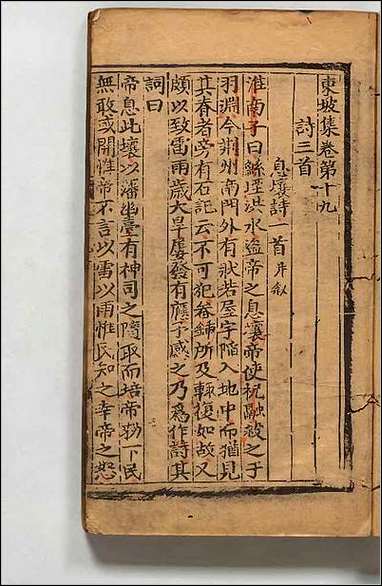 東坡集卷第十九
詩三首
息壤詩一首并叙
淮南子曰鯀堙洪水盗帝之息壤帝使祝融殺之于
羽淵今荆州南門外有狀若屋宇陷入地中而猶見
其脊者旁有石記云不可犯畚鍤所及輒復如故又
頗以致雷雨歲大旱屢發有應予感之乃爲作詩其
詞曰
帝息此壤以藩幽臺有神司之隨取而培帝勑下民
無敢或開惟帝不言以雷以雨惟民知之幸帝之恕